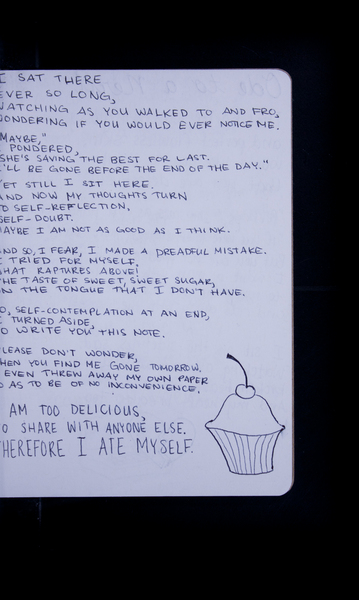 I SAT THERE
EVER SO LONG,
WATCHING AS YOU WALKED TO AND FRO,
WONDERING IF YOU WOULD EVER NOTICE ME.
MAYBE,"
PONDERED,
SHE'S SAVING THE BEST FOR LAST.
'LL BE GONE BEFORE THE END OF THE DAY."
YET STILL I SIT HERE.
AND NOW MY THOUGHTS TURN
TO SELF-REFLECTION,
SELF-DOUBT.
MAYBE I AM NOT AS GOOD AS I THINK.
AND SO, I FEAR, I MADE A DREADFUL MISTAKE.
I TRIED FOR MYSELF.
WHAT RAPTURES ABOVE!
THE TASTE OF SWEET, SWEET SUGAR,
ON THE TONGUE THAT I DON'T HAVE.
SO, SELF-CONTEMPLATION AT AN END,
I TURNED ASIDE,
TO WRITE YOU THIS NOTE.
PLEASE DON'T WONDER,
WHEN YOU FIND ME GONE TOMORROW.
EVEN THREW AWAY MY OWN PAPER
SO AS TO BE OF NO INCONVENIENCE.
I AM TOO DELICIOUS,
TO SHARE WITH ANYONE ELSE.
THEREFORE I ATE MYSELF.